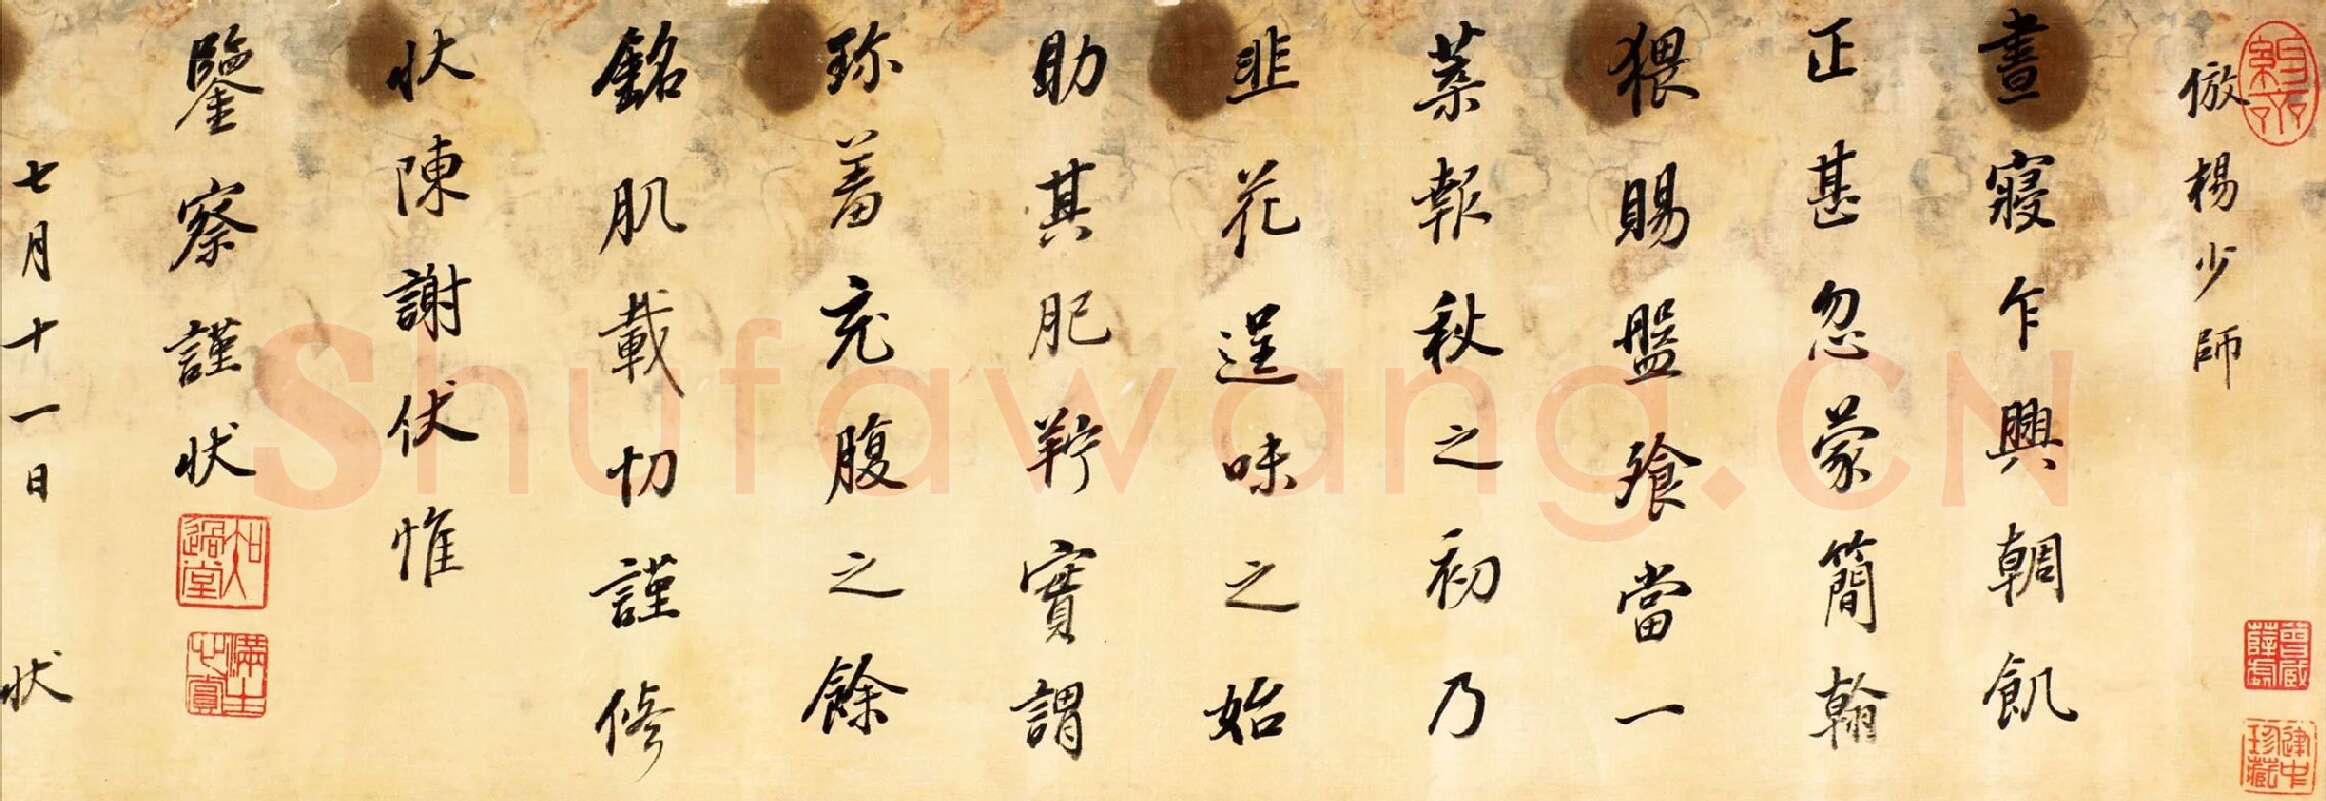 倣楊少師
晝寢乍興輖飢
正甚忽蒙簡翰
猥賜盤飧當一
葉報秋之初乃
韭花逞味之始
助其肥羜實謂
珍羞充腹之餘
銘肌載切謹修
狀陳謝伏惟
鑒察謹狀
七月十一日 狀
知過堂
Shufawang.CN